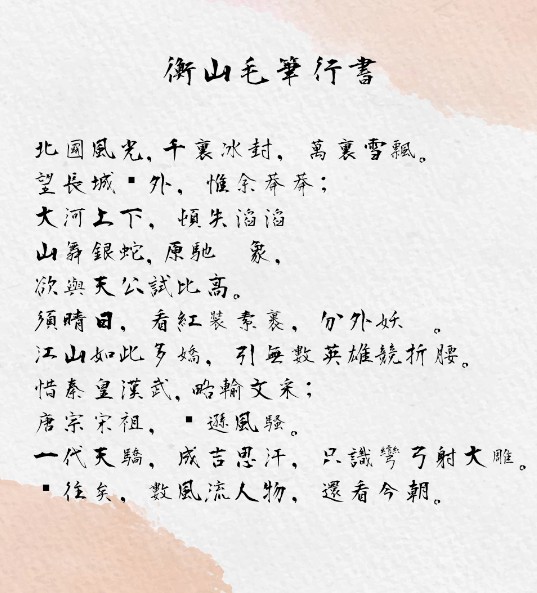 衡山毛筆行書
北國風光,千裏冰封,萬裏雪飄。
望長城 外,惟余莽莽;
大河上下,頓失滔滔
山舞銀蛇,原馳 象,
欲與天公試比高。
須晴日,看紅裝素裹,分外妖 。
江山如此多嬌,引無數英雄競折腰。
惜秦皇漢武,略輸文采;
唐宗宋祖, 遜風騷。
一代天驕,成吉思汗,只識彎弓射大雕。
往矣,數風流人物,還看今朝。